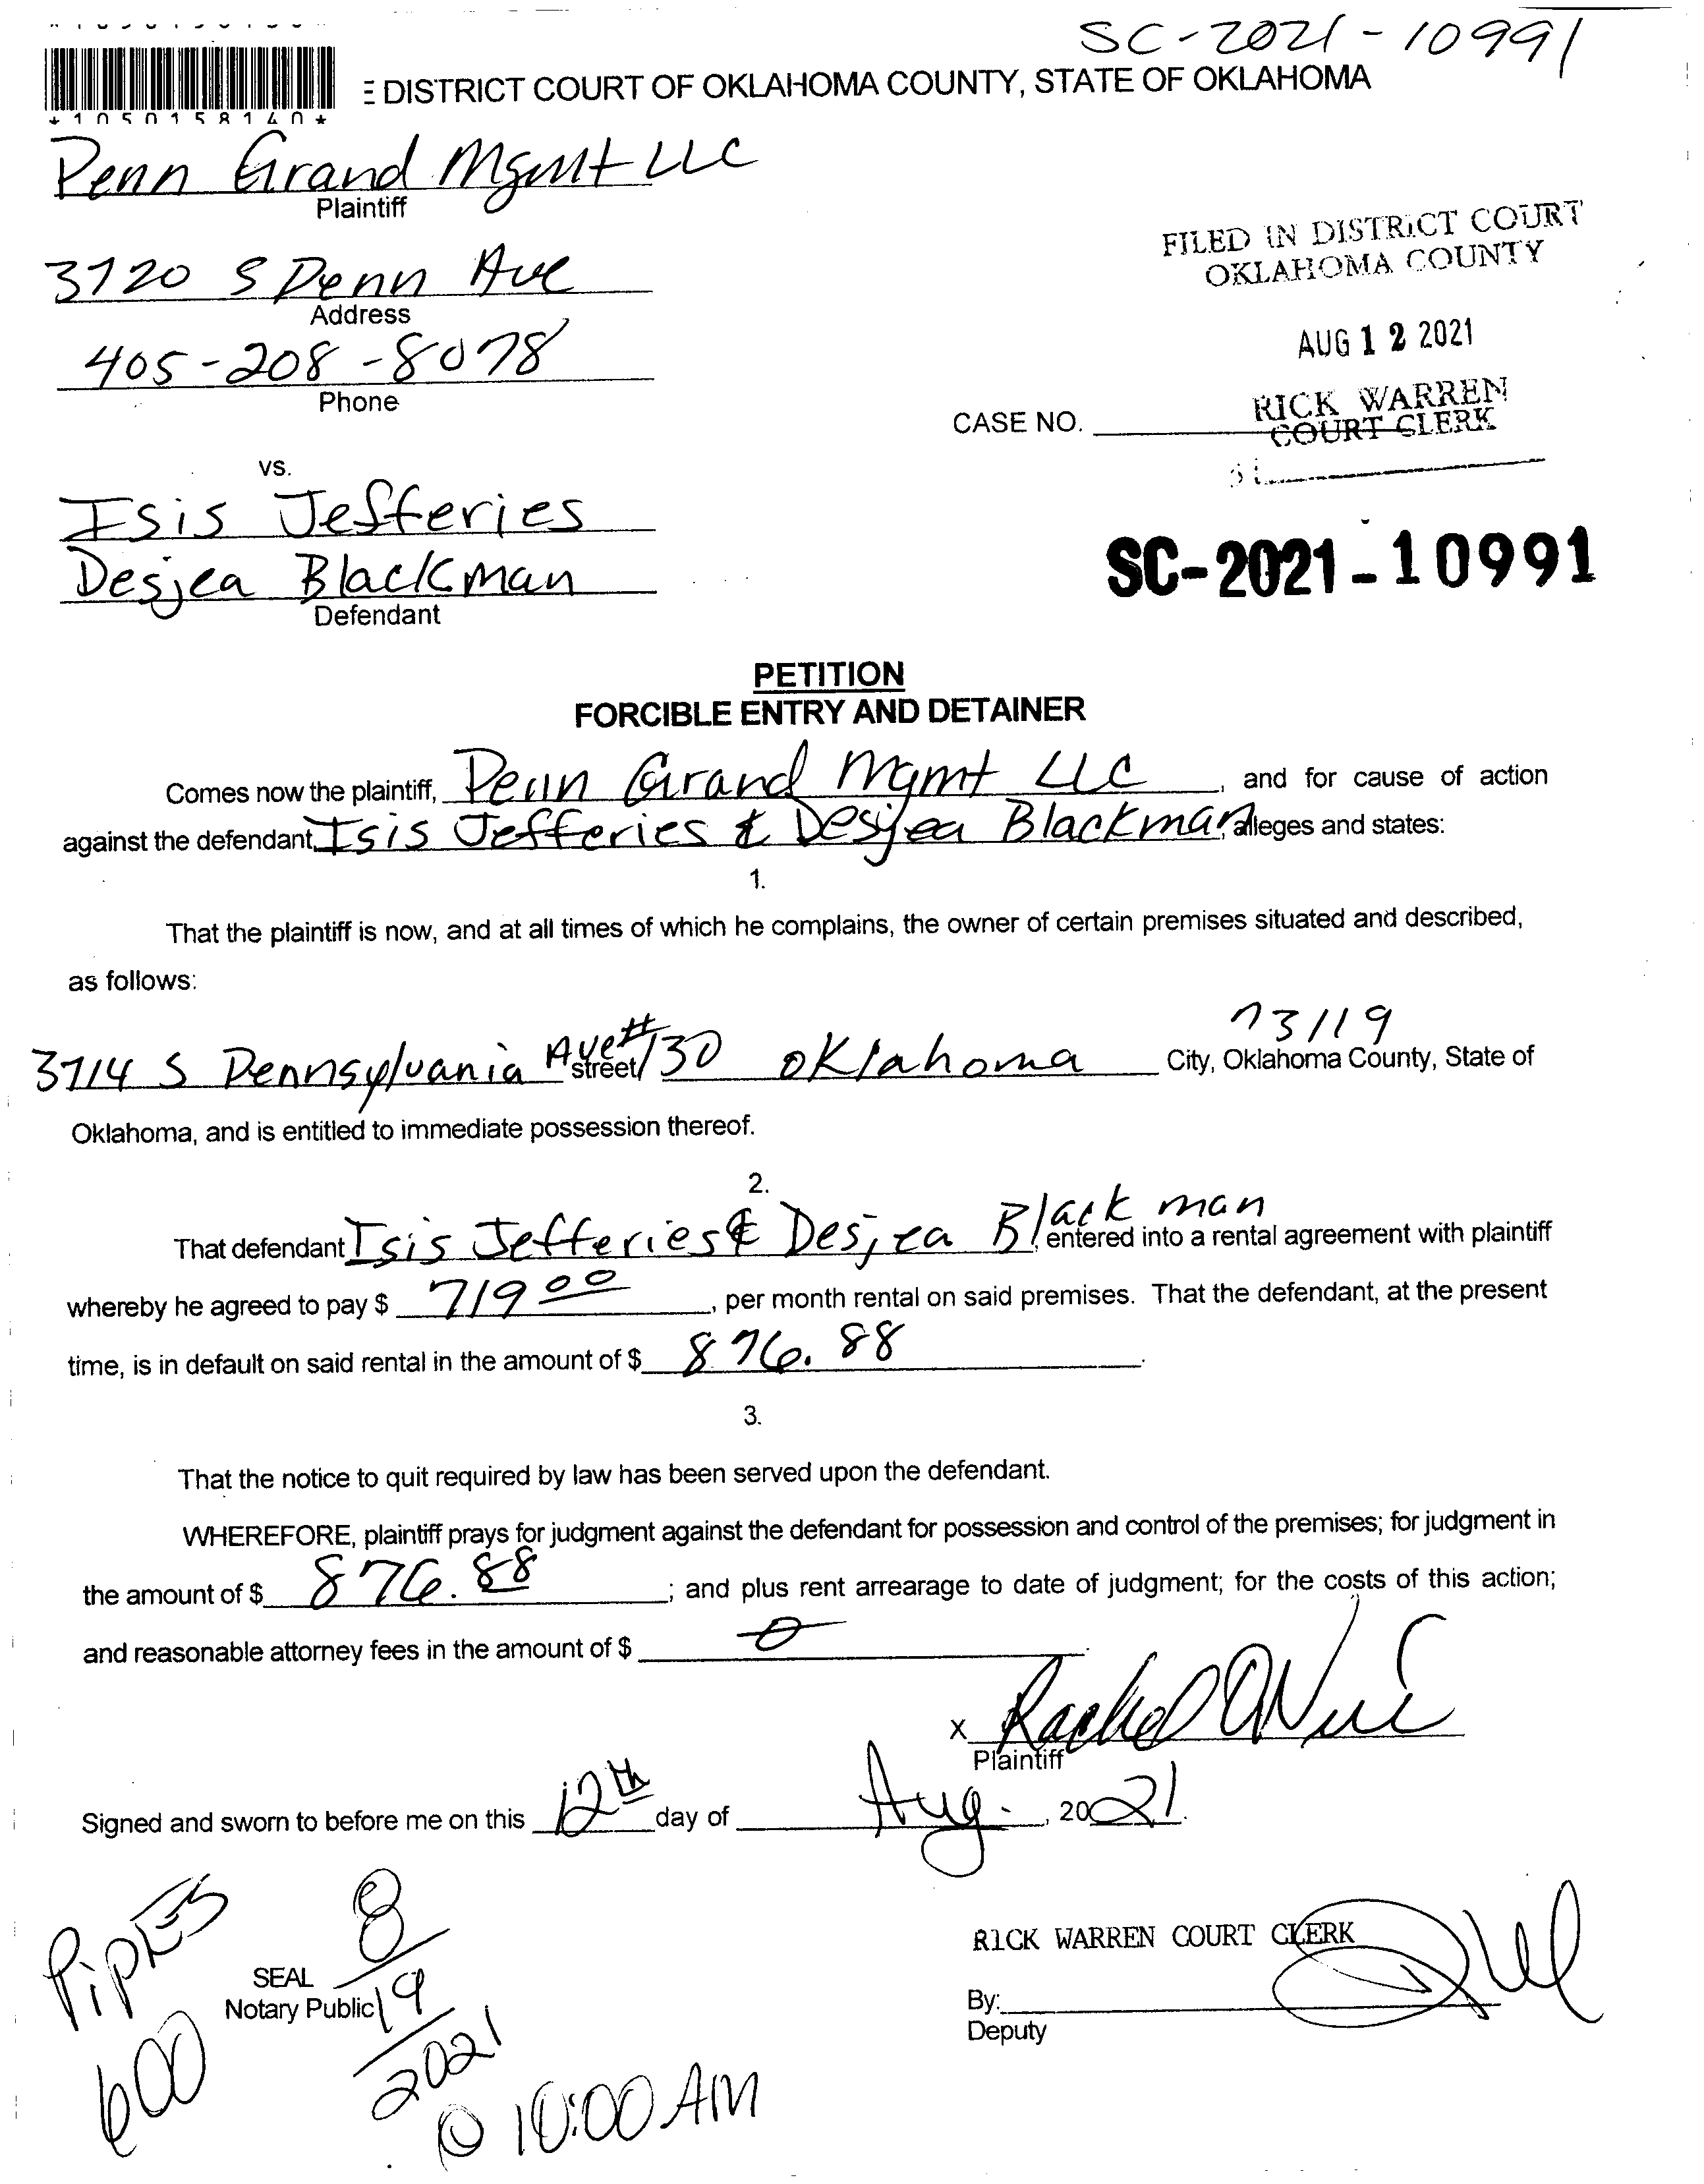 SC-2021-10991
E DISTRICT COURT OF OKLAHOMA COUNTY, STATE OF OKLAHOMA
*1050158140*
Penn Grand Mgmt LLC
Plaintiff
FILED IN DISTRICT COURT
OKLAHOMA COUNTY
3720 S Penn Ave
Address
AUG 12 2021
405-208-8078
Phone
RICK WARREN
COURT CLERK
CASE NO.
vs.
Isis Jefferies
Desjea Blackman
Defendant
SC-2021-10991
PETITION
FORCIBLE ENTRY AND DETAINER
Comes now the plaintiff, Penn Grand Mgmt LLC, and for cause of action
against the defendant, Isis Jefferies & Desjea Blackman, alleges and states:
1.
That the plaintiff is now, and at all times of which he complains, the owner of certain premises situated and described,
as follows:
73119
3714 S Pennsylvania Ave #130 Oklahoma City, Oklahoma County, State of
street
Oklahoma, and is entitled to immediate possession thereof.
2.
That defendant Isis Jefferies & Desjea Blackman, entered into a rental agreement with plaintiff
whereby he agreed to pay $ 719 00, per month rental on said premises. That the defendant, at the present
time, is in default on said rental in the amount of $ 876.88.
3.
That the notice to quit required by law has been served upon the defendant.
WHEREFORE, plaintiff prays for judgment against the defendant for possession and control of the premises; for judgment in
the amount of $ 876.88; and plus rent arrearage to date of judgment; for the costs of this action;
and reasonable attorney fees in the amount of $ 0.
x Rachel
Plaintiff
Signed and sworn to before me on this 12th day of Aug., 2021.
PIPKES
600
8/19/2021
@ 10:00 AM
SEAL
Notary Public
RICK WARREN COURT CLERK
By:
Deputy